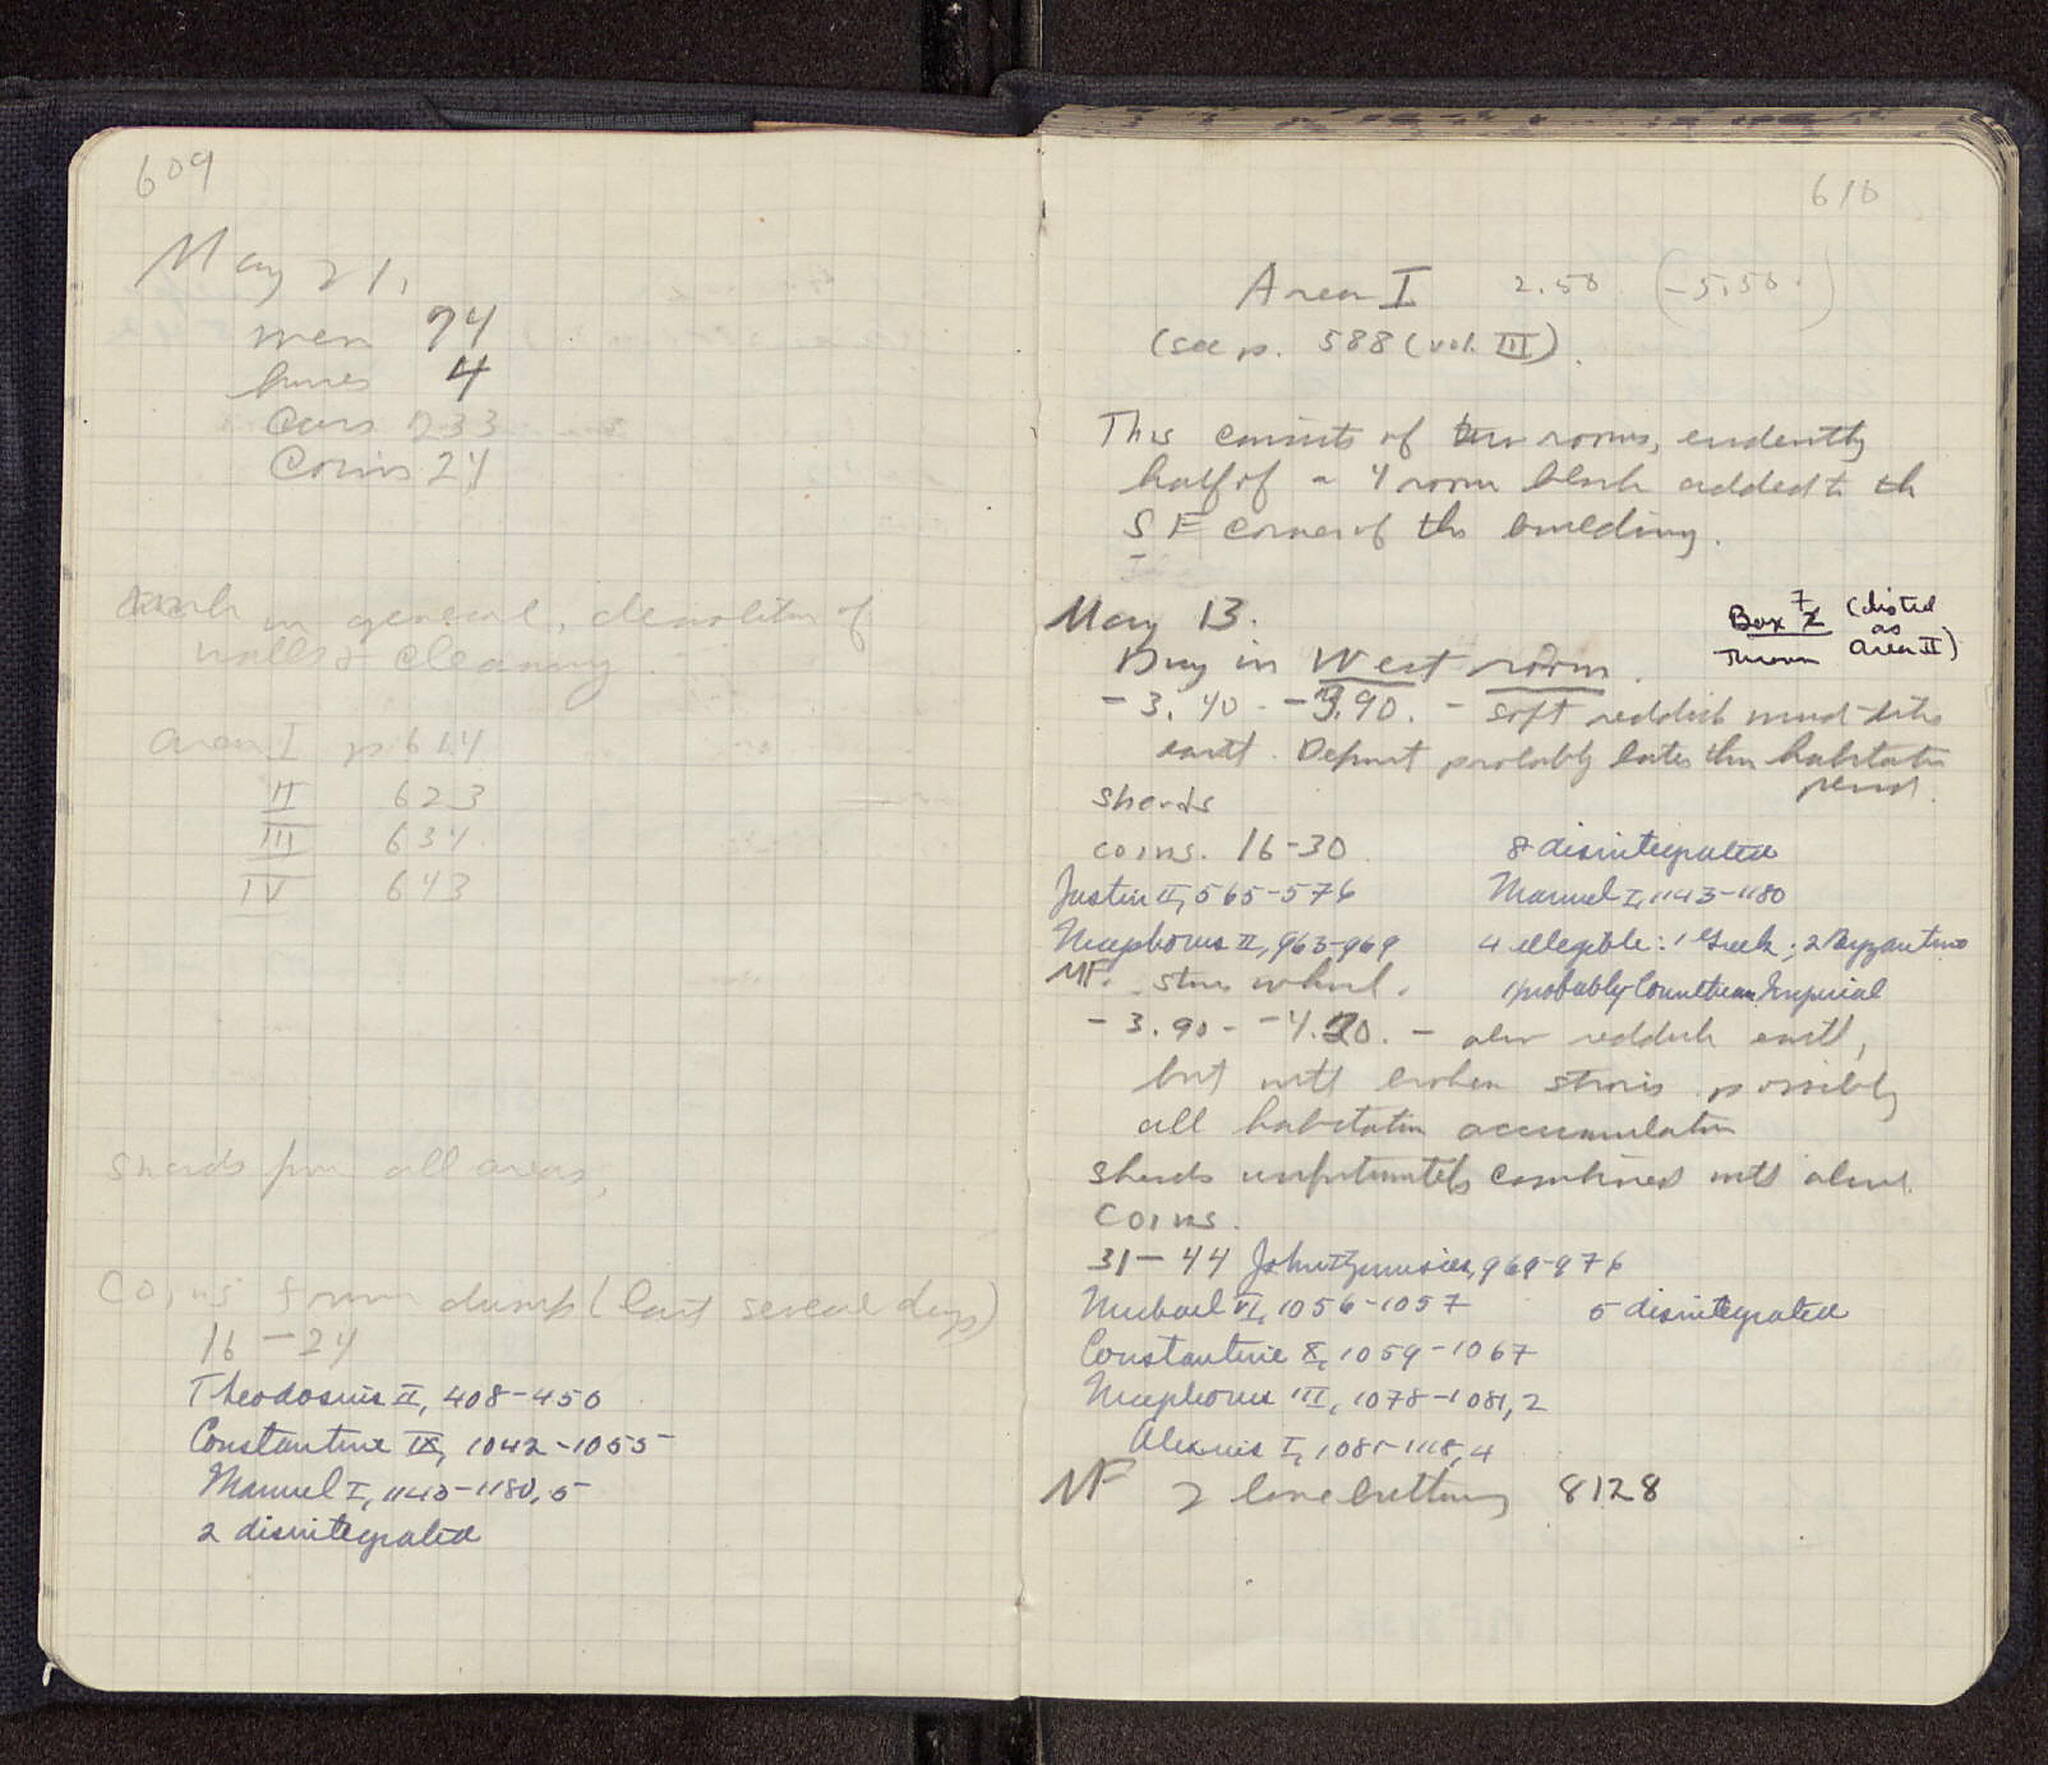 609
May 21.
men 74
horses 4
Cars 233
Coins 24
in general, demolition of
walls & cleaning.
Area I p 614
II 623
III 634
IV 643
Sherds from all areas,
Coins from dump (last several days)
16 - 24
Theodosius II, 408-450
Constantine IX, 1042-1055
Manuel I, 1143-1180, 5
2 disintegrated
610
Area I 2.50 (-5.50.)
(see p. 588 (vol. III).
This consists of two rooms, evidently
half of a 4 room block added to th
SE corner of the building.
May 13.
Box 7 (listed
as
Thrown Area II)
Dug in West room.
- 3.40 - -3.90. - soft reddish mud-like
earth. Deposit probably later than habitation
period.
Sherds
coins. 16-30 8 disintegrated
Justin II, 565-576 Manuel I, 1143-1180
Nicephorus II, 963-969 4 illegible: 1 Greek; 2 Byzantine
MF. stone whorl. 1 probably Corinthian Imperial
- 3.90 - -4.20. - also reddish earth,
but with broken stones possibly
all habitation accumulation
Sherds unfortunately combined with above.
Coins.
31 - 44 John Tzimisces, 969-976
Michael VI, 1056-1057 5 disintegrated
Constantine X, 1059-1067
Nicephorus III, 1078-1081, 2
Alexius I, 1081-1118, 4
MF 2 bone buttons 8128